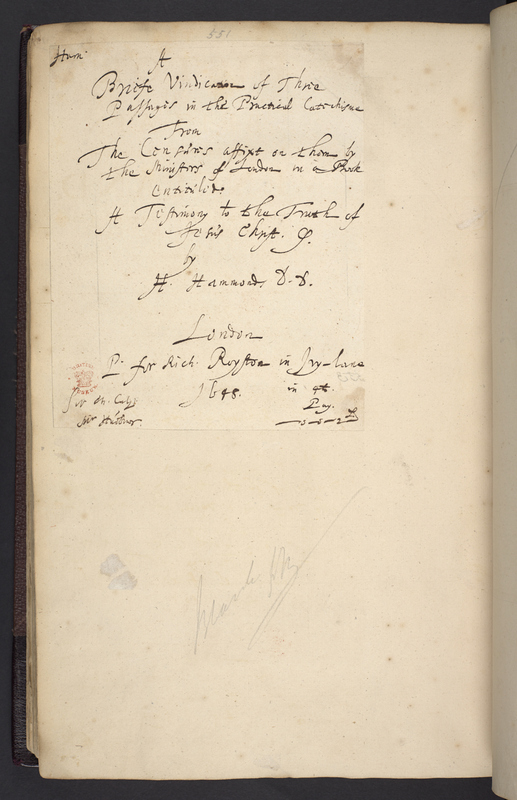 551
Ham:
A
Briefe Vindication of Three
Passages in the Practical Catechisme
From
The Censures affixt on them by
the Ministers of London in a Book
entitiled.
A Testimony to the Truth of
Jesus Christ. &.
by
H. Hammond. D. D.
London
P. for Rich: Royston in Ivy-lane
1648. in 4t.
Pag.